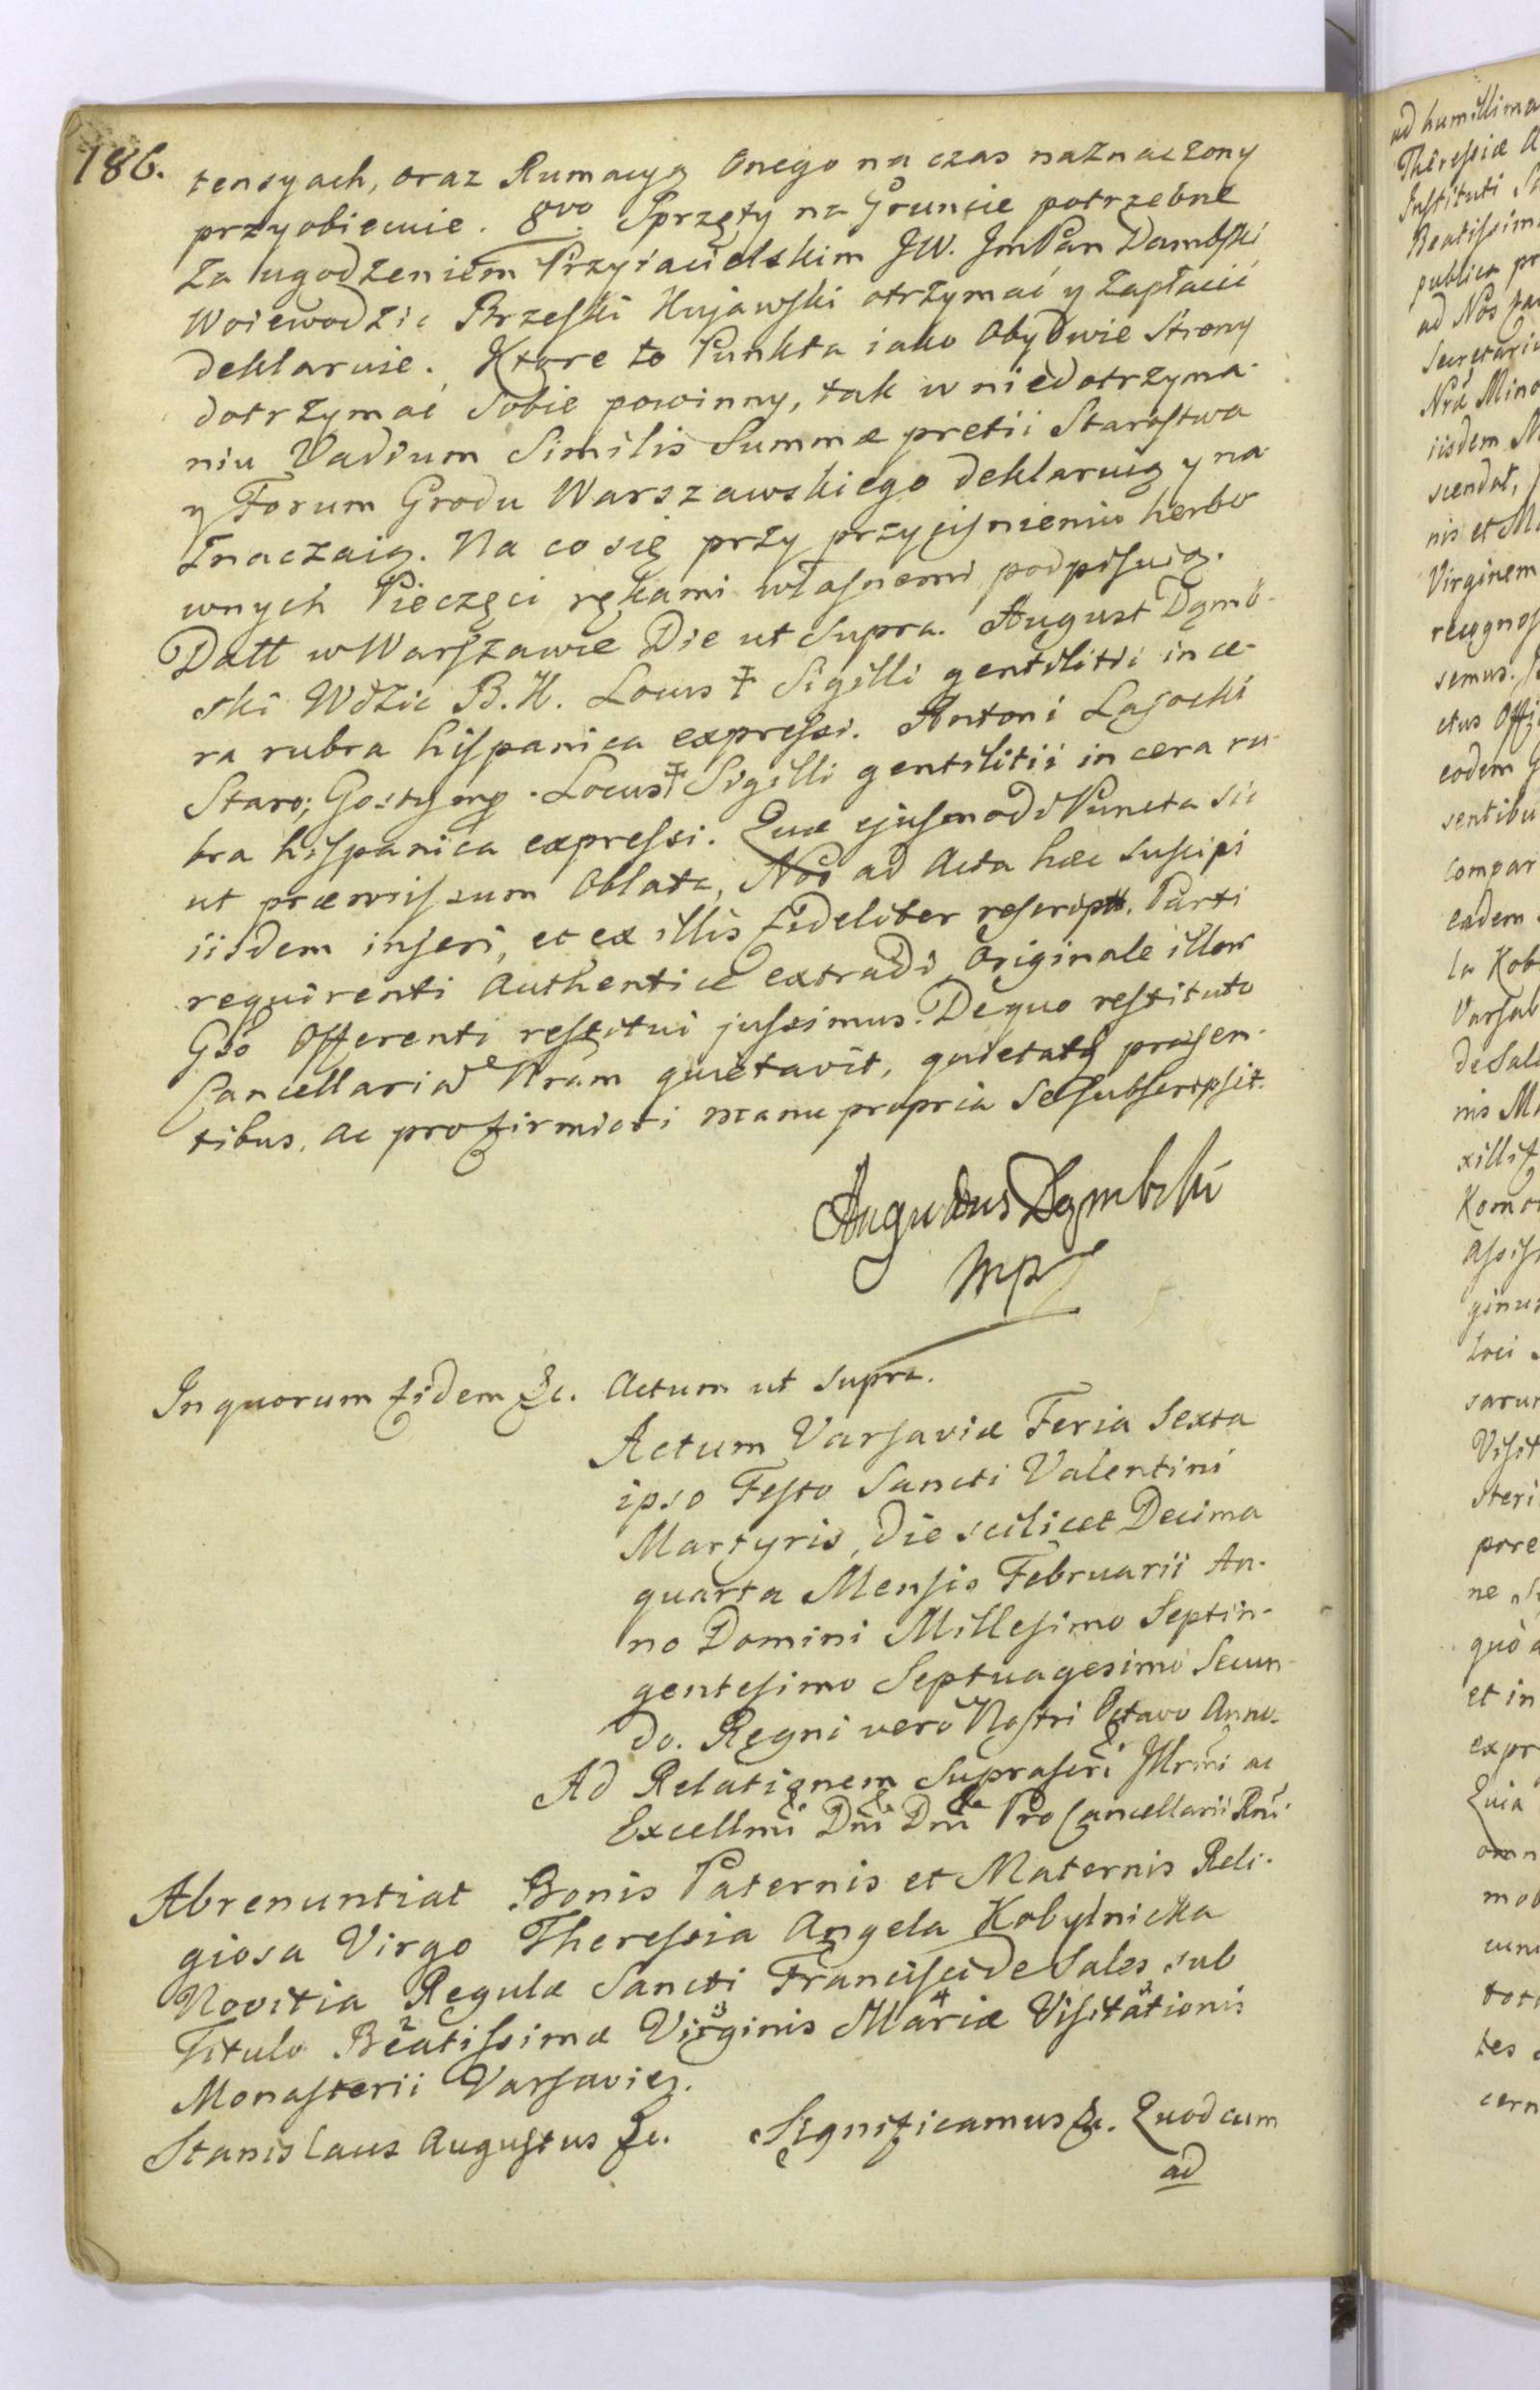 186.
tensyach, oraz Rumacyą Onego na czas naznaczony
przyobiecuie. 8vo. Sprzęty na Gruncie potrzebne
Za ugodzeniem Przyiacielskim JW. JmPan Dambski
Woiewodzic Brzeski Kujawski otrzymać y zapłacić
deklaruie. Ktore to Punkta iako Obydwie Strony
dotrzymać Sobie powinny, tak w niedotrzyma-
niu Vadium Similis Summæ pretii Starostwa
y Forum Grodu Warszawskiego deklaruią y na-
znaczaią. Na co się przy przyciśnieniu herbo-
wnych Pieczęci rękami własnemi podpisuią.
Datt w Warszawie Die ut Supra. August Dąmb-
ski Wdzic B. K. Locus ‡ Sigilli gentilitii in ce-
ra rubra hispanica expressi. Antoni Lasocki
Staro; Gostyng. Locus ‡ Sigilli gentilitii in cera ru-
bra hispanica expressi. Quæ ejusmodi Puncta sic
ut præmissum Oblata, Nos ad Acta hæc suscipi
iisdem inseri, et ex illis fideliter rescriptt. Parti
requirenti Authentice extradi, Originale illor
Gso Offerenti restitui jussimus. De quo restituto
Cancellariã Nram quietavit, quietatq præsen-
tibus, ac pro firmiori manu propria se subscripsit.
Augustus Dąmbski
mp
In quorum fidem &c. Actum ut supra.
Actum Varsaviæ Feria Sexta
ipso Festo Sancti Valentini
Martyris, Die scilicet Decima
quarta Mensis Februarii An-
no Domini Millesimo Septin-
gentesimo Septuagesimo Secun-
do. Regni vero Nostri Octavo Anno.
Ad Relationem Suprascri Illrmi ac
Excellmi Dni Dni Pro Cancellarii Rni
Abrenuntiat Bonis Paternis et Maternis Reli-
giosa Virgo Theressia Angela Kobylnicka
Novitia Regulæ Sancti Francisci de Sales sub
Titulo Beatissimæ Virginis Mariæ Visitationis
Monasterii Varsavien.
Stanislaus Augustus &c. Significamus &c. Quod cum
ad